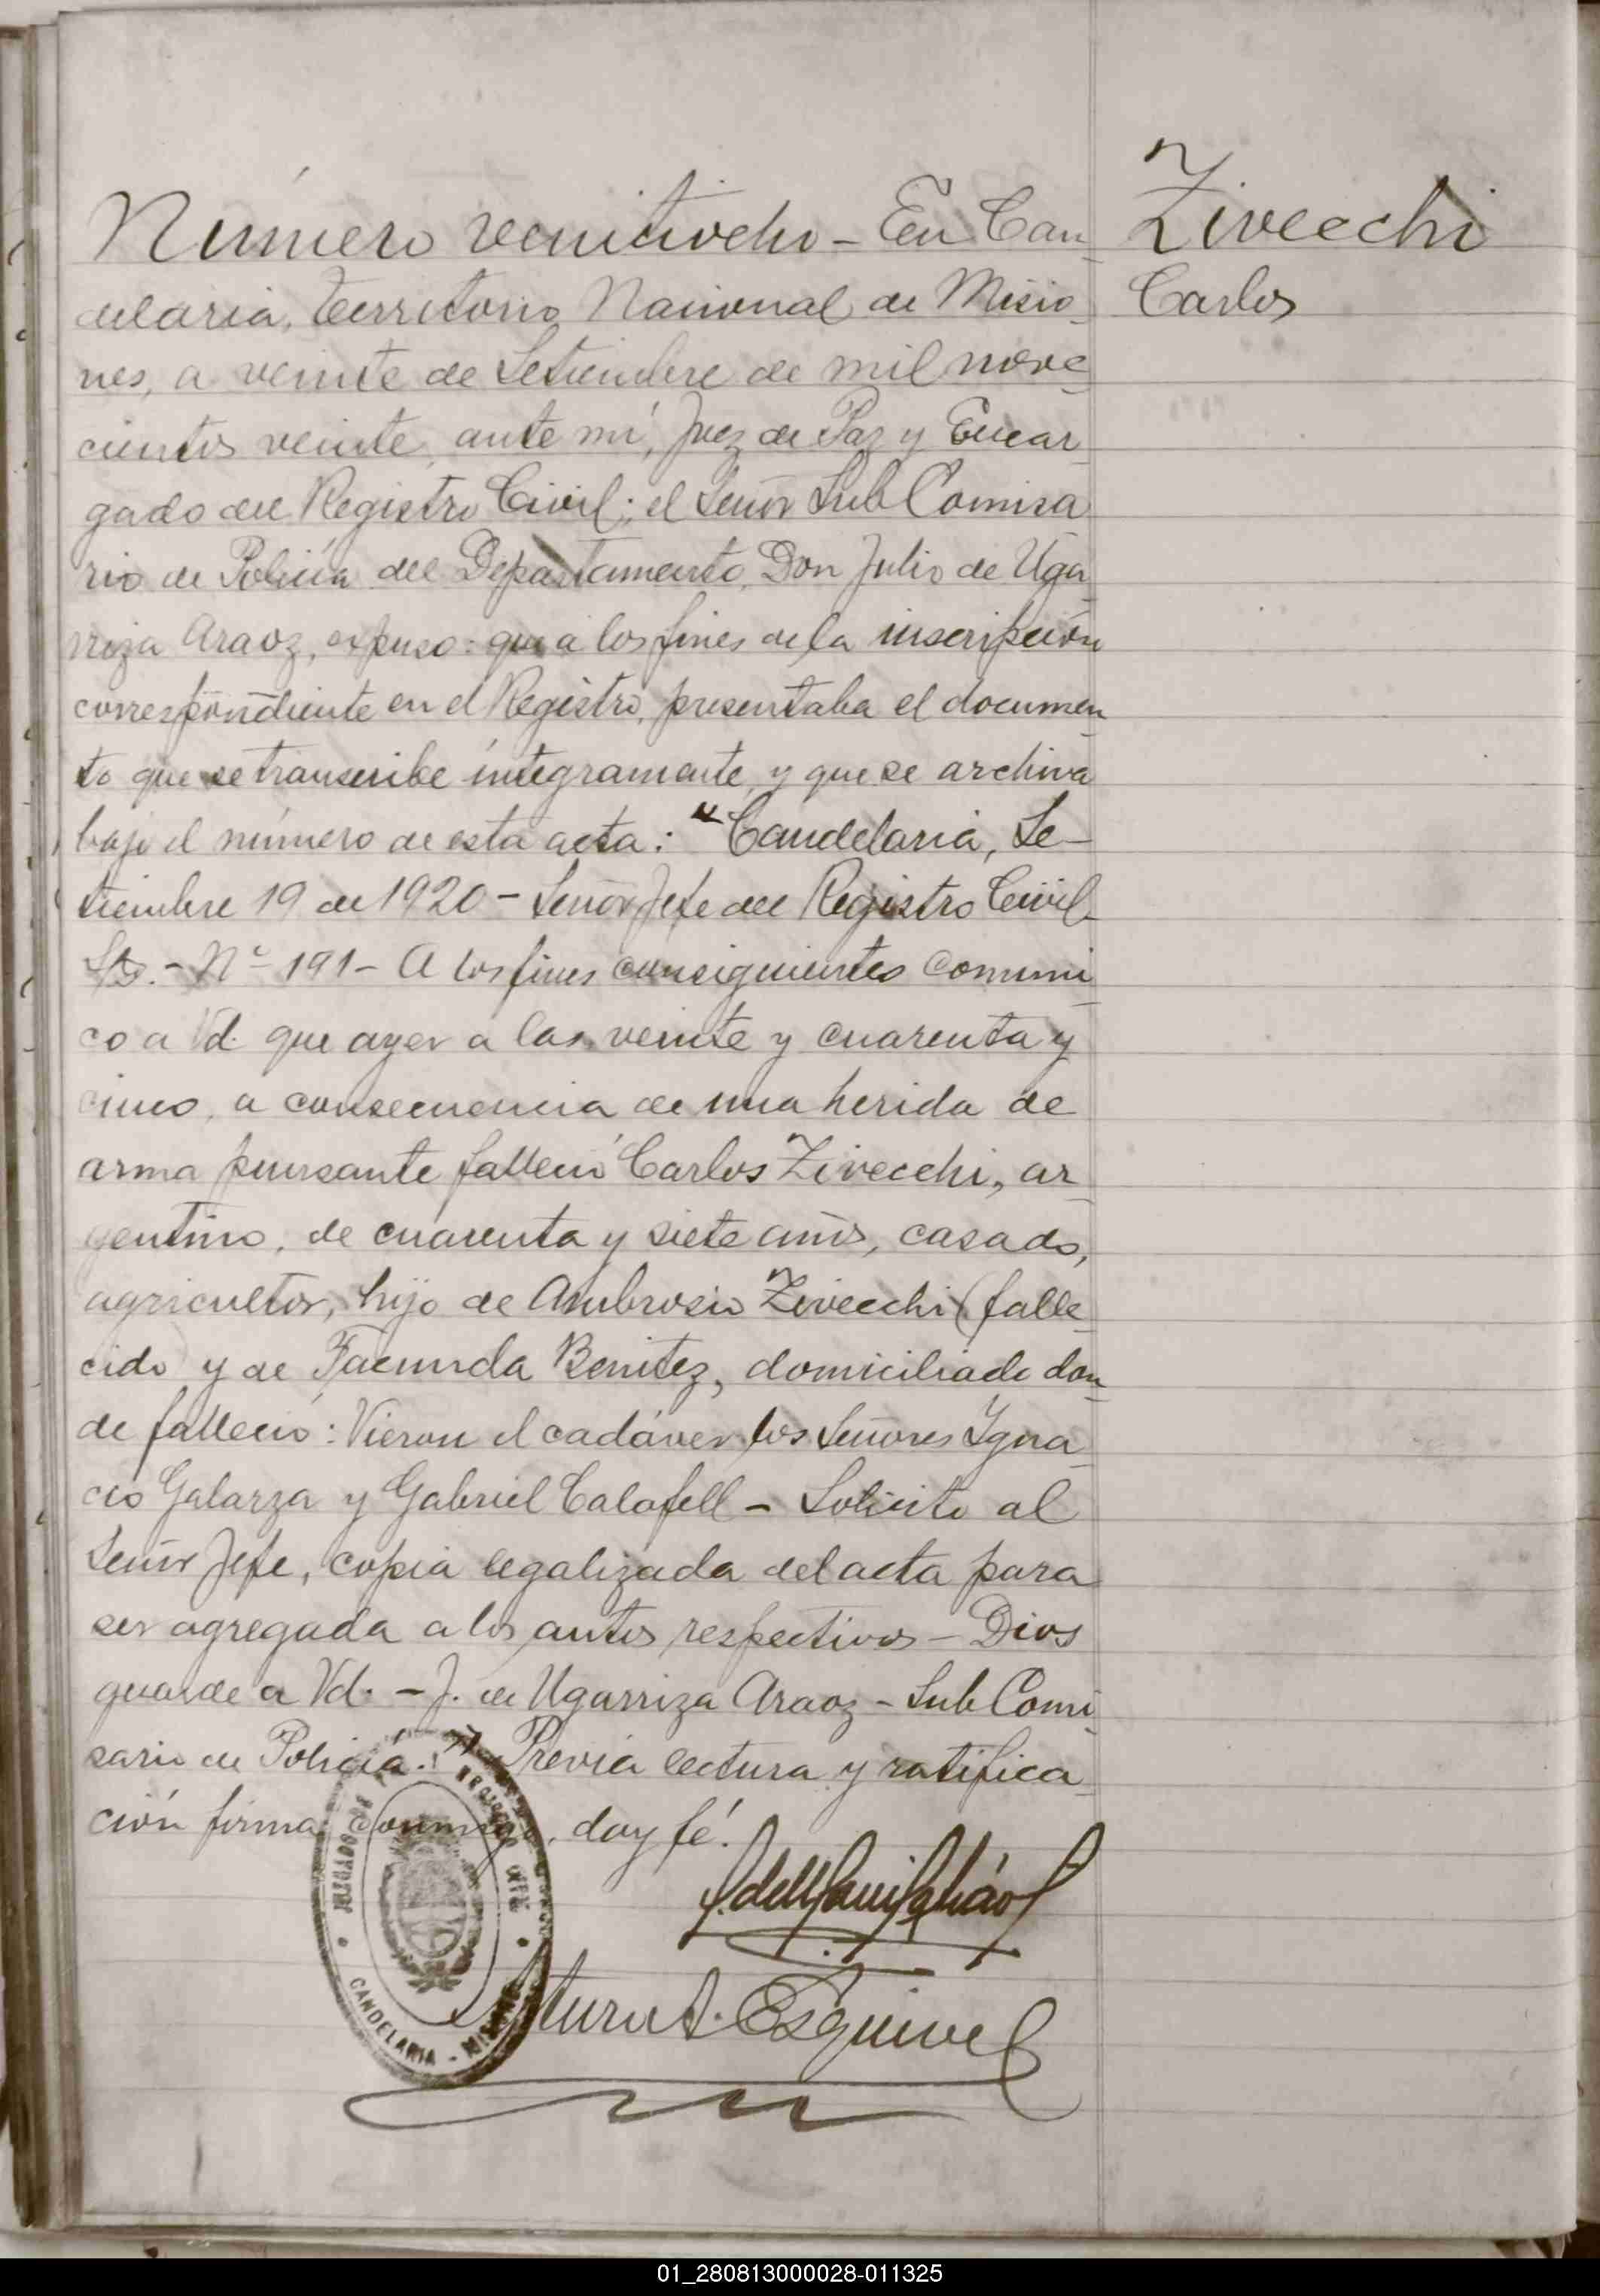 Número veintiocho - En Can-
delaria, Territorio Nacional de Misio-
nes, a veinte de Setiembre de mil nove-
cientos veinte, ante mí, Juez de Paz y Encar-
gado del Registro Civil; el Señor Sub Comisa-
rio de Policía del Departamento, Don Julio de Uga-
rriza Araoz, expuso: que a los fines de la inscripción
correspondiente en el Registro, presentaba el documen-
to que se transcribe íntegramente, y que se archiva
bajo el número de esta acta: "Candelaria, Se-
tiembre 19 de 1920 - Señor Jefe del Registro Civil
S/D. - Nº 191 - A los fines consiguientes comuni-
co a Vd. que ayer a las veinte y cuarenta y
cinco, a consecuencia de una herida de
arma punsante falleció Carlos Zivecchi, ar-
gentino, de cuarenta y siete años, casado,
agricultor, hijo de Ambrosio Zivecchi (falle-
cido y de Facunda Benitez, domiciliado don-
de falleció: Vieron el cadáver los Señores Ygna-
cio Galarza y Gabriel Calafell - Solicito al
Señor Jefe, copia legalizada del acta para
ser agregada a los autos respectivos - Dios
guarde a Vd. - J. de Ugarriza Araoz - Sub Comi-
sario de Policía." Previa lectura y ratifica-
ción firma conmigo, doy fé.
Arturo A. Esquivel
CANDELARIA - MISIONES
Zivecchi
Carlos
01_280813000028-011325